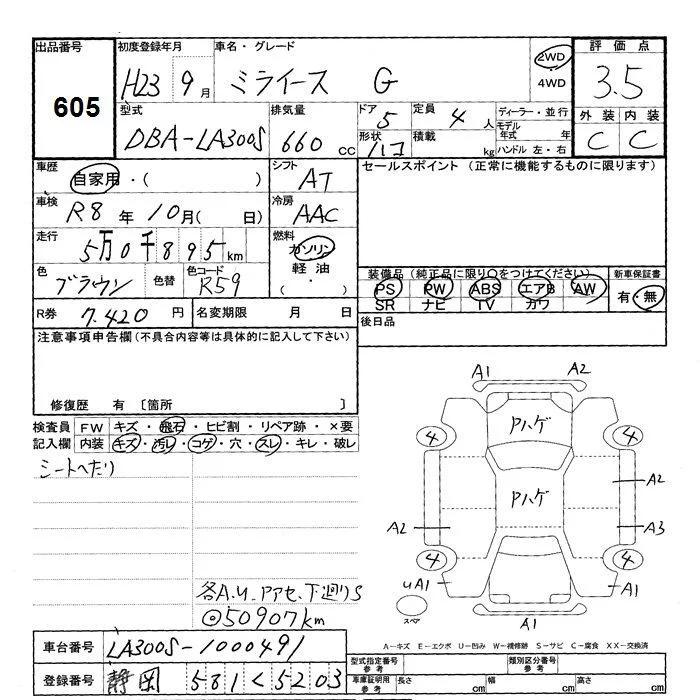 出品番号 605
初度登録年月 H23 9月
車名・グレード ミライース G
2WD
4WD
評価点 3.5
型式 DBA-LA300S
排気量 660 CC
ドア 5
形状 ハコ
定員 4 人
積載 kg
ディーラー・並行
モデル年式 年
ハンドル 左・右
外装 内装
C C
車歴 自家用・( )
シフト AT
セールスポイント (正常に機能するものに限ります)
車検 R8 年 10月( 日)
冷房 AAC
走行 5万0千895km
燃料 ガソリン
軽油
( ・ )
色 ブラウン 色替 色コード R59
装備品(純正品に限り○をつけてください) 新車保証書
PS PW ABS エアB AW 有・無
SR ナビ TV カワ
R券 7.420 円 名変期限 月 日
後日品
注意事項申告欄(不具合内容等は具体的に記入して下さい)
修復歴 有 〔箇所 〕
検査員 FW キズ・飛石・ヒビ割・リペア跡・×要
記入欄 内装 キズ・汚レ・コゲ・穴・スレ・キレ・破レ
シートへたり
A1 A2
Pハゲ
4 4
Pハゲ
A2
A2 A3
4 4
UA1 A1
スペア
A1
各A.U.Pアセ、下廻りS
◎50907km
A-キズ E-エクボ U-凹み W-補修跡 S-サビ C-腐食 XX-交換済
車台番号 LA300S-1000491
型式指定番号 参考 類別区分番号 参考
登録番号 静岡 581 く 5203
車庫証明用 参考 長さ cm 幅 cm 高さ cm